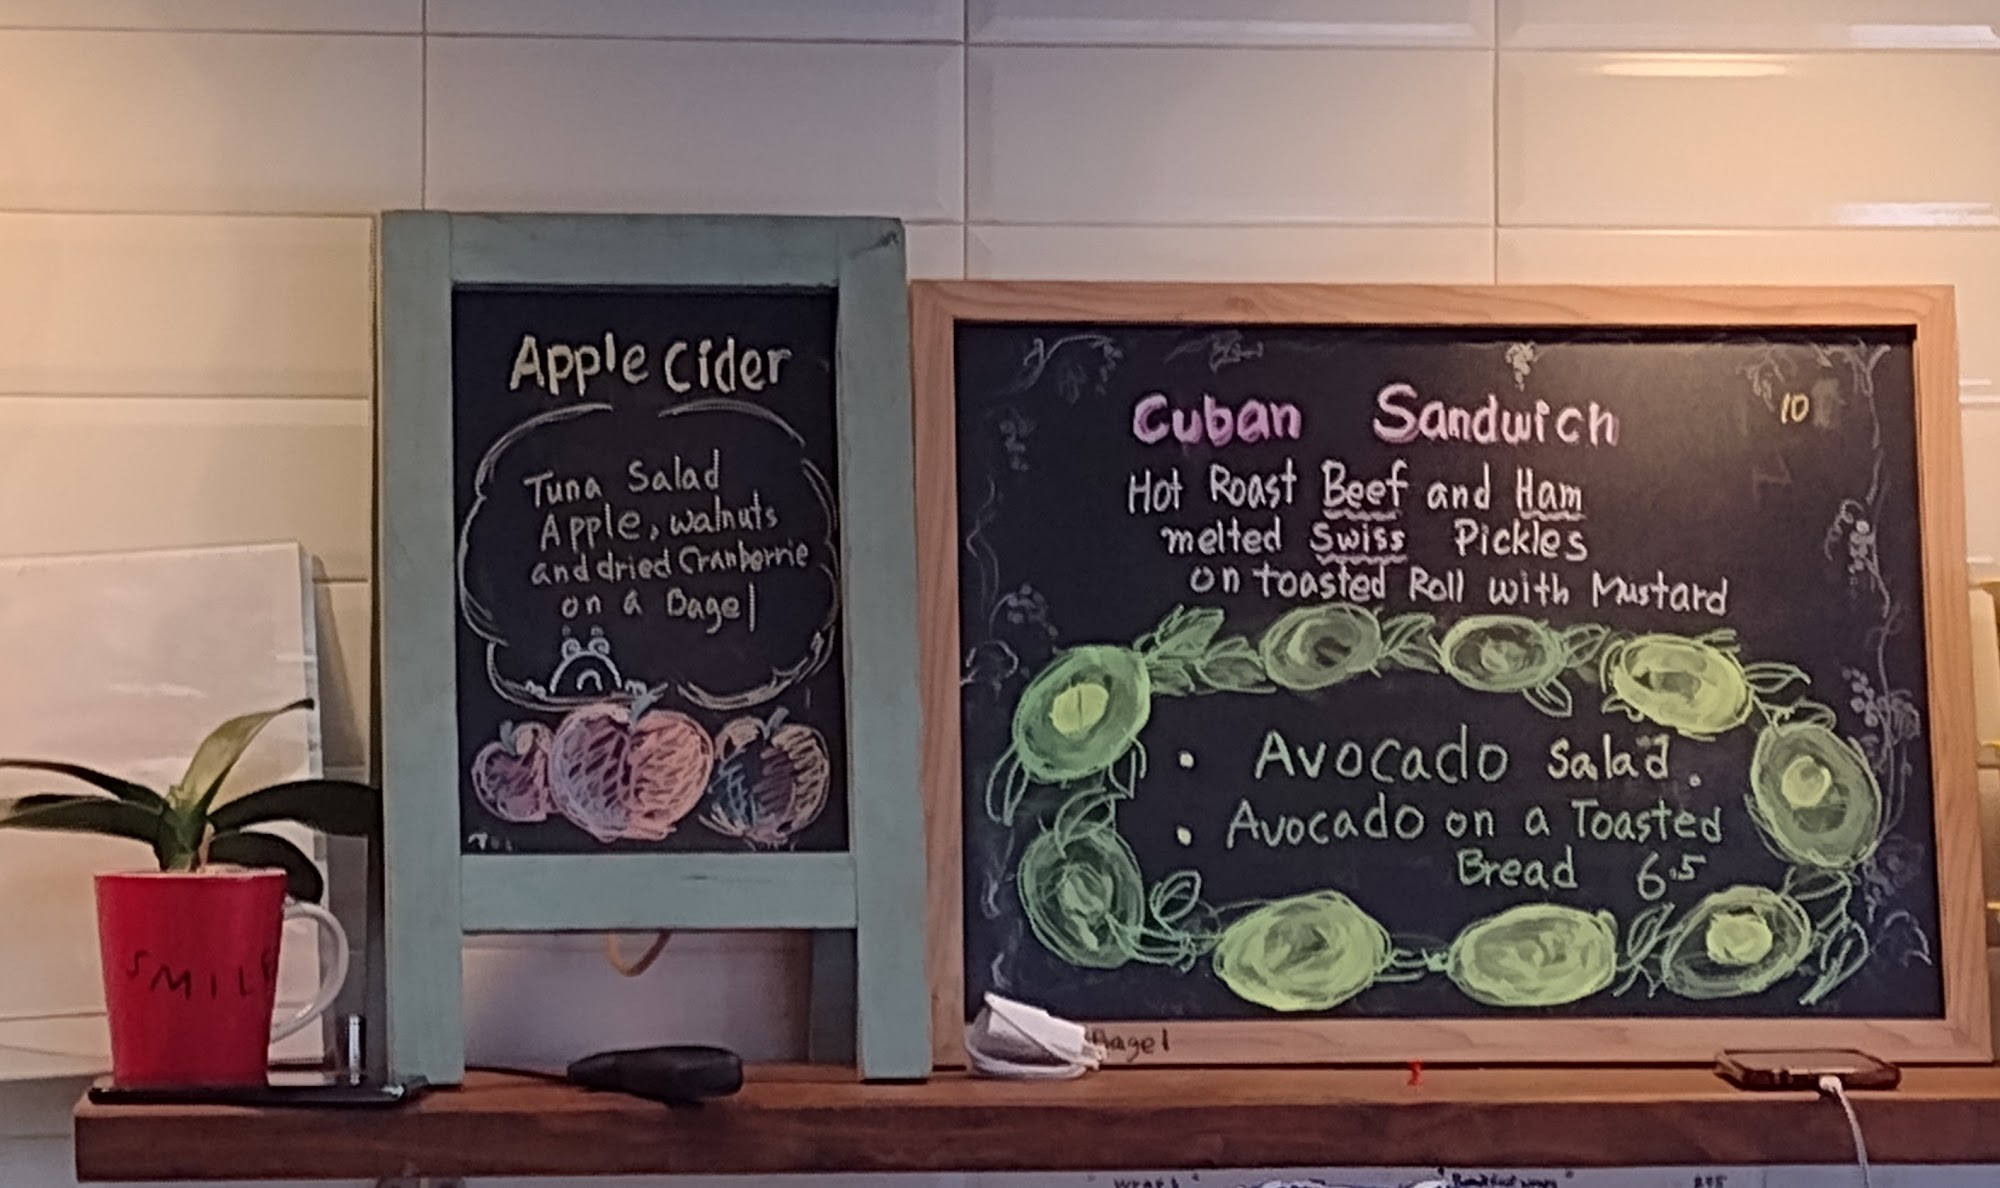 Apple Cider
Tuna Salad
Apple, walnuts
and dried Cranberrie
on a Bagel
SMILE
Cuban Sandwich 10
Hot Roast Beef and Ham
melted Swiss Pickles
on toasted Roll with Mustard
• Avocado Salad.
• Avocado on a Toasted
Bread 6.5
Bagel